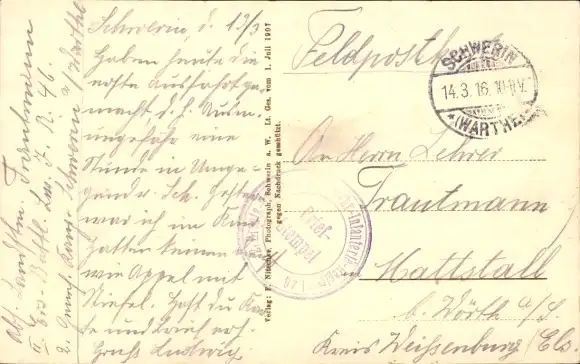 Schwerin, d. 13/3
Haben heute die
erste Ausfahrt ge-
macht, d. h.
ungefähr eine
Stunde in Umge-
gend v. Sch. Gestern
war ich im
hatten keinen
wie Appel mit
Stiefel. Hast du
und
Gruss Ludwig
Abs. Landstm Trautmann
II. Ers. Battl. I. R. 46.
2. Schwerin a/Warthe
Verlag: F. Nitschke, Photograph, Schwerin a. W. Lt. Ges. vom 1. Juli 1907
gegen Nachdruck geschützt.
Feldpostkarte
SCHWERIN
14.3.16. 10-11V.
(WARTHE)
Brief-
stempel
Infanterie
An Herrn Lehrer
Trautmann
Mattstall
b. Wörth a/S.
Kreis Weissenburg (Els